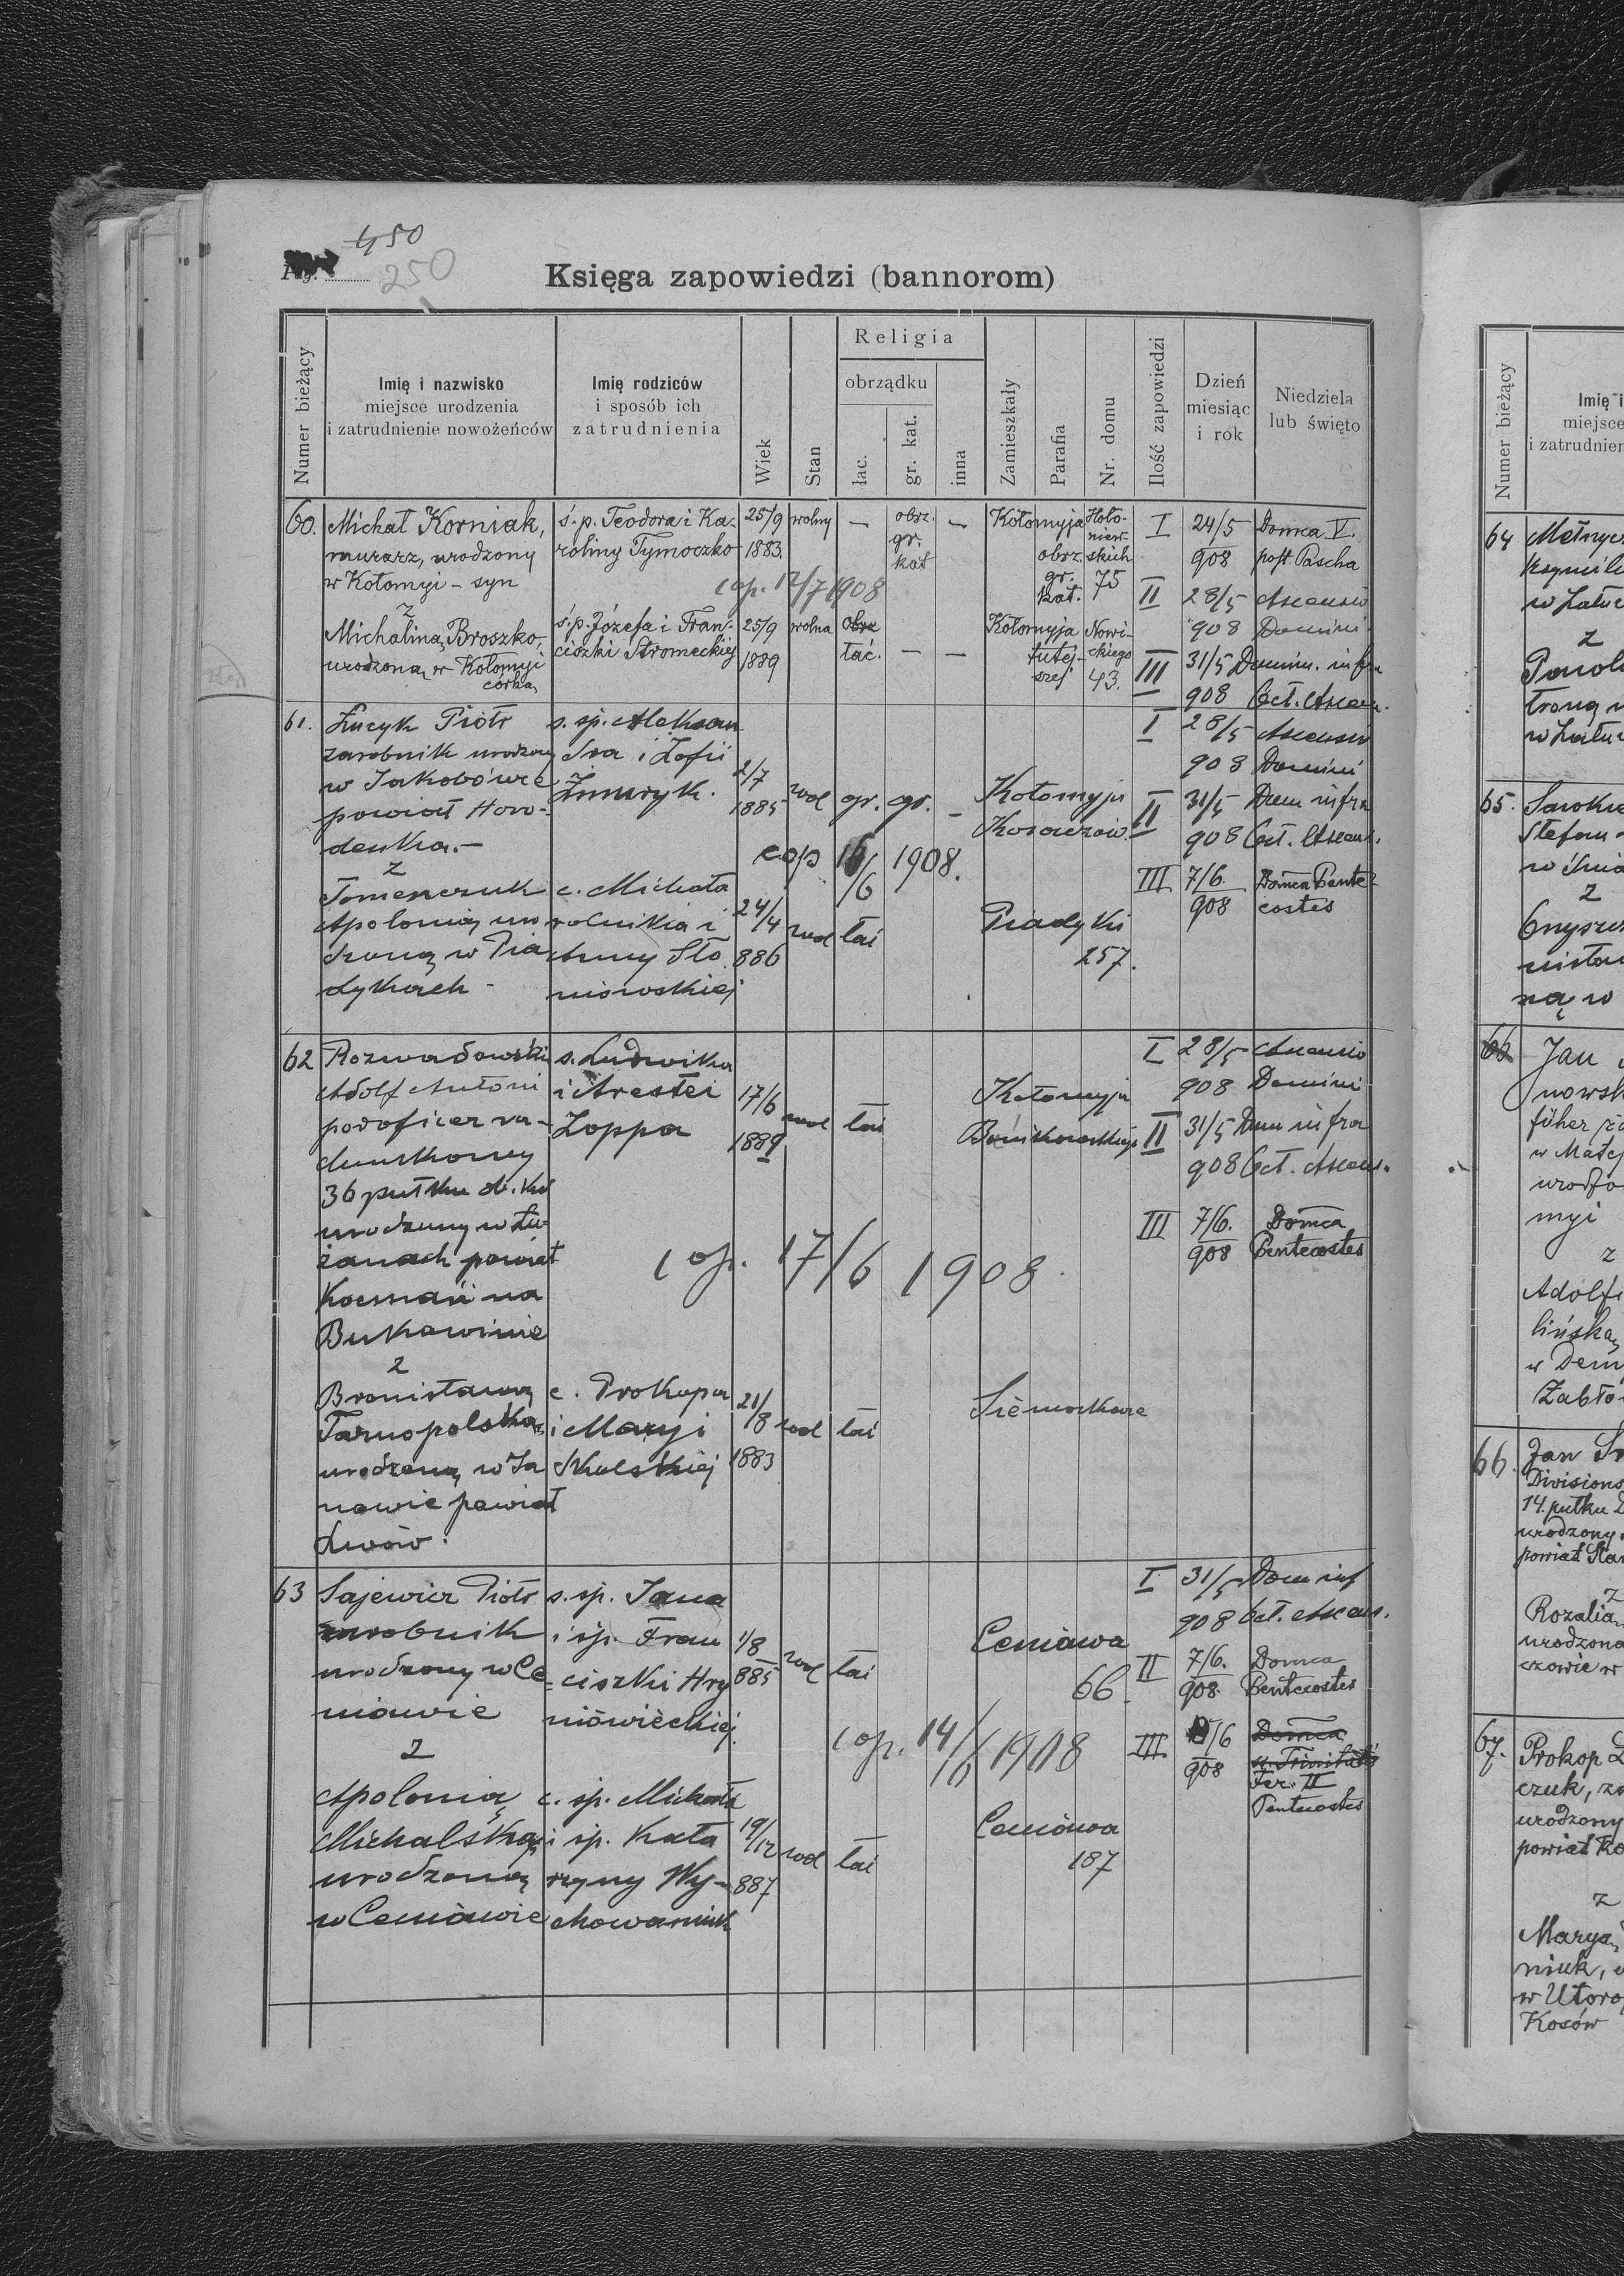 450
Pag. 250
Księga zapowiedzi (bannorom)
Numer bieżący
Imię i nazwisko
miejsce urodzenia
i zatrudnienie nowożeńców
Imię rodziców
i sposób ich
zatrudnienia
Wiek
Stan
Religia
obrządku
łac.
gr. kat.
inna
Zamieszkały
Parafia
Nr. domu
Ilość zapowiedzi
Dzień
miesiąc
i rok
Niedziela
lub święto
60. Michał Korniak, ś.p. Teodora i Ka- 25/9 wolny — obrz. — Kołomyja Hoło- I 24/5 Domca V.
murarz, urodzony roliny Tymoczko 1883. gr. obrz. skich 908 post Pascha
w Kołomyi – syn kat gr. 75
cop. 12/7 1908 kat. II 28/5 Ascensio
z
Michaliną Broszko, ś.p. Józefa i Fran- 25/9 wolna obrz Kołomyja Nowi- 908 Domini
urodzoną w Kołomyi ciszki Stromeckiej 1889 łać. — — tutej- ckiego III 31/5 Domin. infra
córką szej 43. 908 Oct. Ascen.
61. Piotr s. sp. Aleksan- I 28/5 Ascensio
zarobnik urodzony dra i Zofii 2/7 908 Domini
w Jakobówce 1885 wol gr. gr. – Kołomyja II 31/5 Dom infra
powiat Horo- 908 Oct. Ascens.
denka.–
cop 16/6 1908.
z
Tomenczuk c. Michała III 7/6. Domca Pente-
Apolonią uro rolnika i 24/4 wol łac Piadyki 908 costes
dzoną w Pia Anny Sło 886 257.
dykach – niowskiej
62 Rozwadowski s. Ludwika I 28/5 Ascensio
Adolf Antoni 17/6 Kołomyja 908 Domini
podoficer ra- Zoppa 1889 wol łac II 31/5 Dom infra
chunkowy 908 Oct. Ascens.
36 pułku ob. kr.
urodzony w Łu- III 7/6. Domca
żanach powiat 908 Pentecostes
Kocmań na
cop. 17/6 1908.
Bukowinie
z
Bronisławą c. Prokopa 21/8
Tarnopolską i Maryi wol łac
urodzoną w Ja Skulskiej 1883
nowie powiat
Lwów.
63 Sajewicz Piotr s. sp. Jana I 31/5 Dom inf
zarobnik i sp. Fran 1/8 Ceniawa 908 Oct. Ascens.
urodzony w Ce ciszki Hry 885 wol łac 66. II 7/6. Domca
niawie niówieckiej. 908. Pentecostes
cop. 14/6 1908 III /6 Domca
z 908 ss. Trinitatis
Fer. II
Apolonią c. sp. Michała Pentecostes
Michalską i sp. Kata 19/12 wol łac Ceniawa
urodzoną rzyny Wy- 887 187
w Ceniawie chowaniuk
Numer bieżący
Imię i
miejsce
i zatrudnien
64
w Łatuc
z
w Łatuc
65.
Stefan
z
ną w
66 Jan
nowsk
föher
w Matej
urodzo
myi
z
Adolfi
lińską
w Dem
Zabło
66. Jan
Divisions
14. pułku
urodzony
powiat Stan
z
Rozalią
urodzona
czowie w
67. Prokop
czuk, za
urodzony
powiat Ko
z
Maryą
niuk, u
w Utoro
Kosów